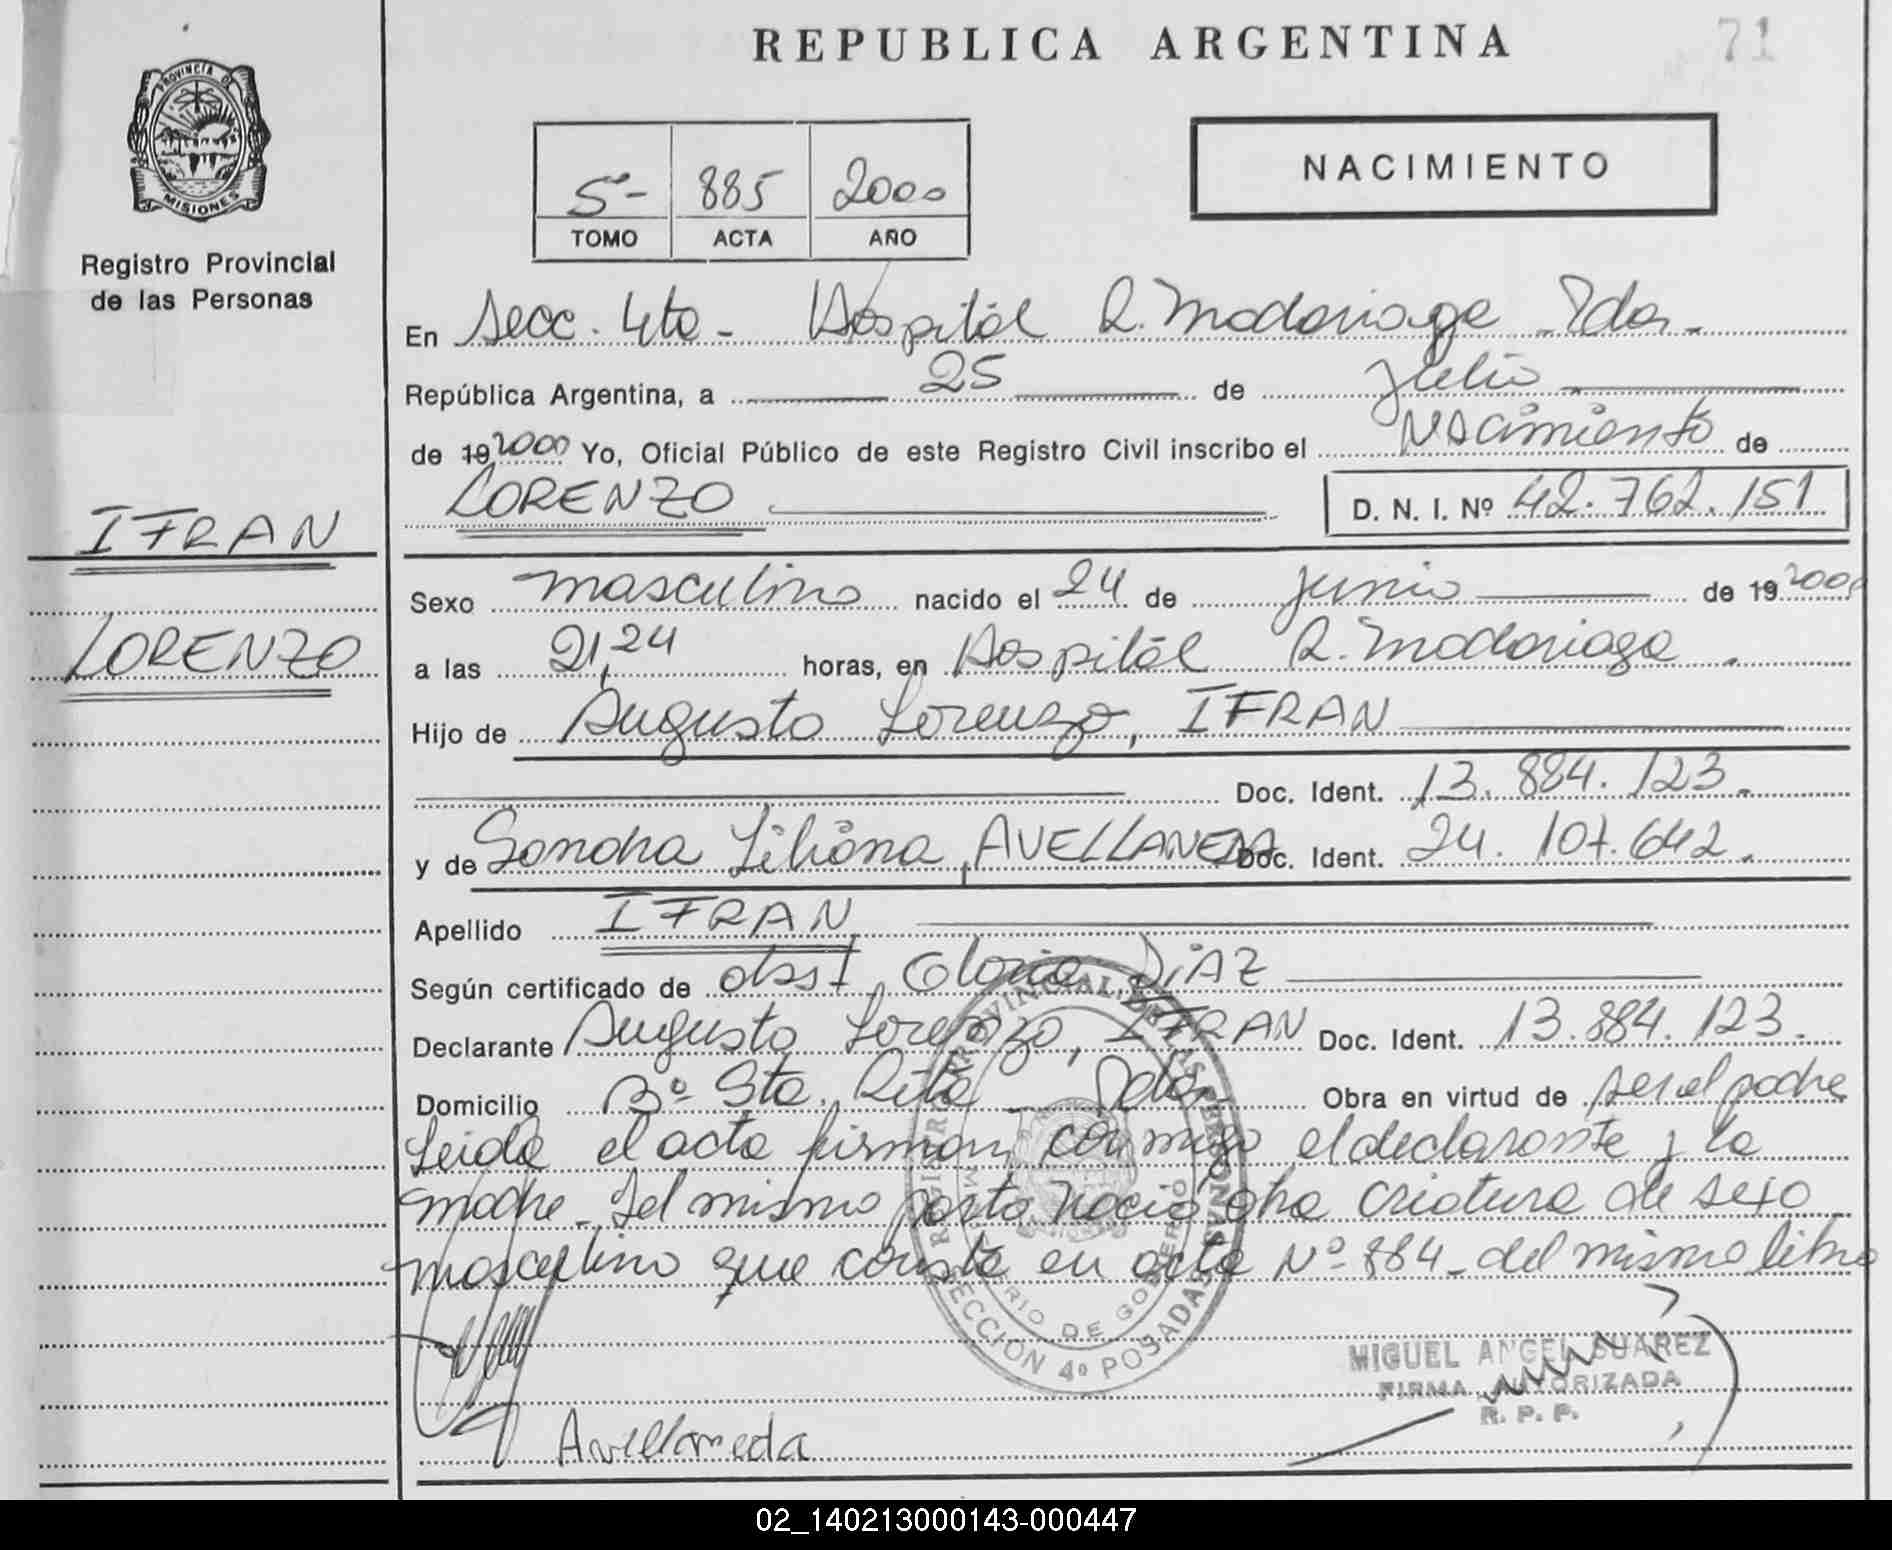 REPUBLICA ARGENTINA
71
PROVINCIA DE
MISIONES
Registro Provincial
de las Personas
5º- 885 2000
TOMO ACTA AÑO
NACIMIENTO
En Secc. 4ta- Hospital R. Madariaga Pdas-
República Argentina, a 25 de Julio
de 192000 Yo, Oficial Público de este Registro Civil inscribo el Nacimiento de
LORENZO
D. N. I. Nº 42.762.151
IFRAN
LORENZO
Sexo masculino nacido el 24 de junio de 192000
a las 21,24 horas, en Hospital R. Madariaga.
Hijo de Augusto Lorenzo, IFRAN
Doc. Ident. 13.884.123.
y de Sandra Liliana, AVELLANEDA Doc. Ident. 24.107.642.
Apellido IFRAN
Según certificado de obst. Gloria DIAZ
Declarante Augusto Lorenzo, IFRAN Doc. Ident. 13.884.123.
Domicilio Bº Sta. Rita - Pdas- Obra en virtud de ser el padre
Leida el acta firman conmigo el declarante y la
madre- Del mismo parto nació otra criatura de sexo
masculino que consta en acta Nº 884- del mismo libro
REGISTRO PROVINCIAL DE LAS PERSONAS
MINISTERIO DE GOBIERNO
SECCIÓN 4º POSADAS
MIGUEL ANGEL SUAREZ
FIRMA AUTORIZADA
R. P. P.
Avellaneda
02_140213000143-000447